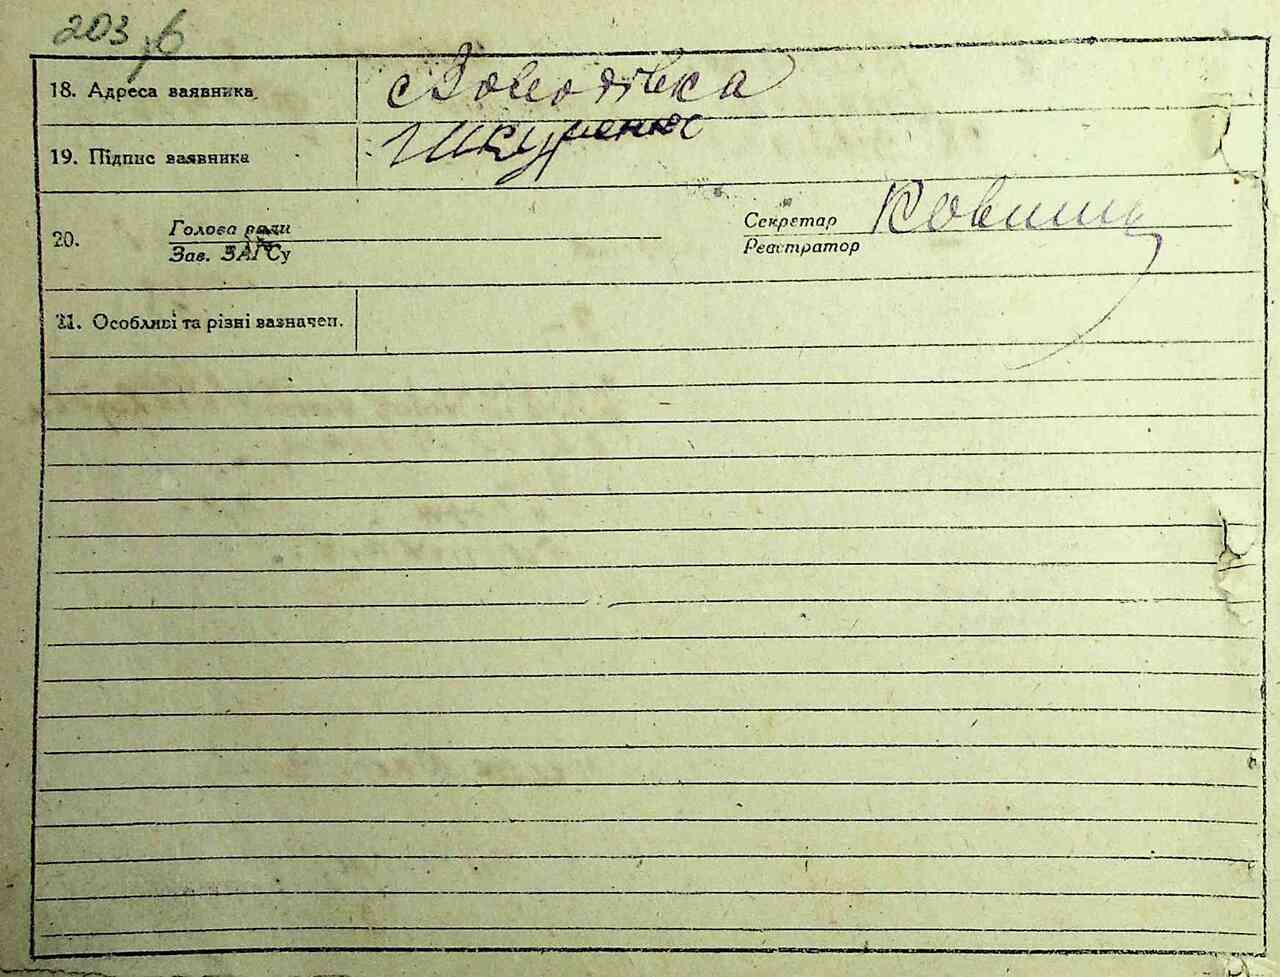 203
18. Адреса заявника
19. Підпис заявника Шкуренко
20. Голова ради
Зав. ЗАГСу
Секретар
Реєстратор
21. Особливі та різні зазначен.